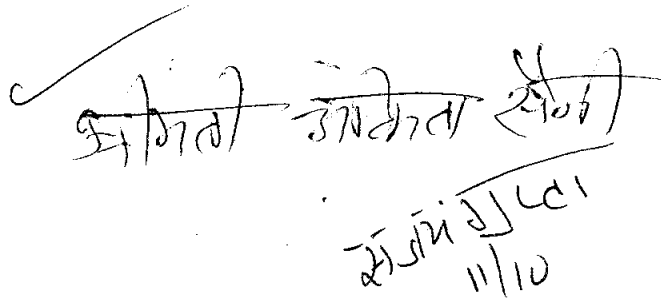 श्रीमती अंकिता सैनी
संजय गुप्ता
11/10